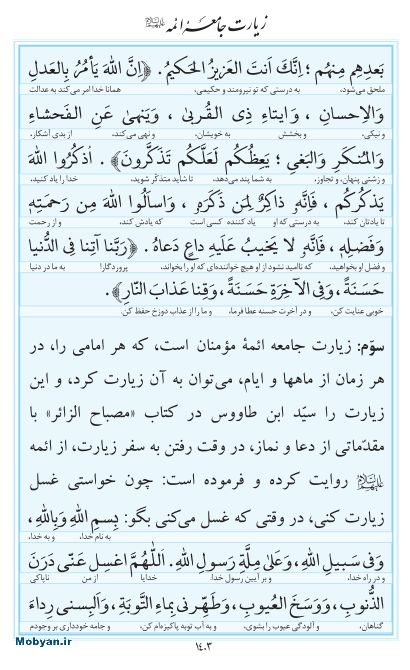 زیارت جامعهٔ ائمه علیهم‌السلام
بَعدِهِم مِنهُم ؛ اِنَّكَ اَنتَ العَزيزُ الحَكيمُ . ﴿اِنَّ اللهَ يَأمُرُ بِالعَدلِ
ملحق می‌شود، به درستی که تو نیرومند و حکیمی، همانا خدا امر می‌کند به عدالت
وَالاِحسانِ ، وَايتاءِ ذِى القُربىٰ ، وَيَنهىٰ عَنِ الفَحشاءِ
و نیکی، و بخشش به خویشان، و نهی می‌کند، از بدی آشکار،
وَالمُنكَرِ وَالبَغيِ ؛ يَعِظُكُم لَعَلَّكُم تَذَكَّرونَ﴾ . اُذكُرُوا اللهَ
و زشتی پنهان، و تجاوز، به شما پند می‌دهد، تا شاید متذکّر شوید، خدا را یاد کنید،
يَذكُركُم ، فَاِنَّهو ذاكِرٌ لِمَن ذَكَرَهو ، وَاسأَلُوا اللهَ مِن رَحمَتِهى
تا یادتان کند، به درستی که او یاد کننده کسی است که یادش کند، و از رحمت
وَفَضلِهى ، فَاِنَّهو لا يَخيبُ عَلَيهِ داعٍ دَعاهُ . ﴿رَبَّنا آتِنا فِى الدُّنيا
و فضل او بخواهید، که ناامید نشود از او هیچ خواننده‌ای که او را بخواند، پروردگارا! به ما در دنیا
حَسَنَةً ، وَفِى الآخِرَةِ حَسَنَةً ، وَقِنا عَذابَ النّارِ﴾ .
خوبی عنایت کن، و در آخرت حسنه عطا فرما، و ما را از عذاب دوزخ حفظ کن.
سوّم: زیارت جامعه ائمهٔ مؤمنان است، که هر امامی را، در
هر زمان از ماهها و ایام، می‌توان به آن زیارت کرد، و این
زیارت را سیّد ابن طاووس در کتاب «مصباح الزائر» با
مقدّماتی از دعا و نماز، در وقت رفتن به سفر زیارت، از ائمه
علیهم‌السلام روایت کرده و فرموده است: چون خواستی غسل
زیارت کنی، در وقتی که غسل می‌کنی بگو: بِسمِ اللهِ وَبِاللهِ،
به نام خدا، و به خدا،
وَفى سَبيلِ اللهِ، وَعَلىٰ مِلَّةِ رَسولِ اللهِ. اَللّٰهُمَّ اغسِل عَنّى دَرَنَ
و در راه خدا، و بر آیین رسول خدا. خدایا از من ناپاکی
الذُّنوبِ، وَوَسَخَ العُيوبِ، وَطَهِّرنى بِماءِ التَّوبَةِ، وَاَلبِسنى رِداءَ
گناهان، و آلودگی عیوب را بشوی، و به آب توبه پاکیزه‌ام کن، و جامه خودداری بر وجودم
۱۴۰۳
Mobyan.ir